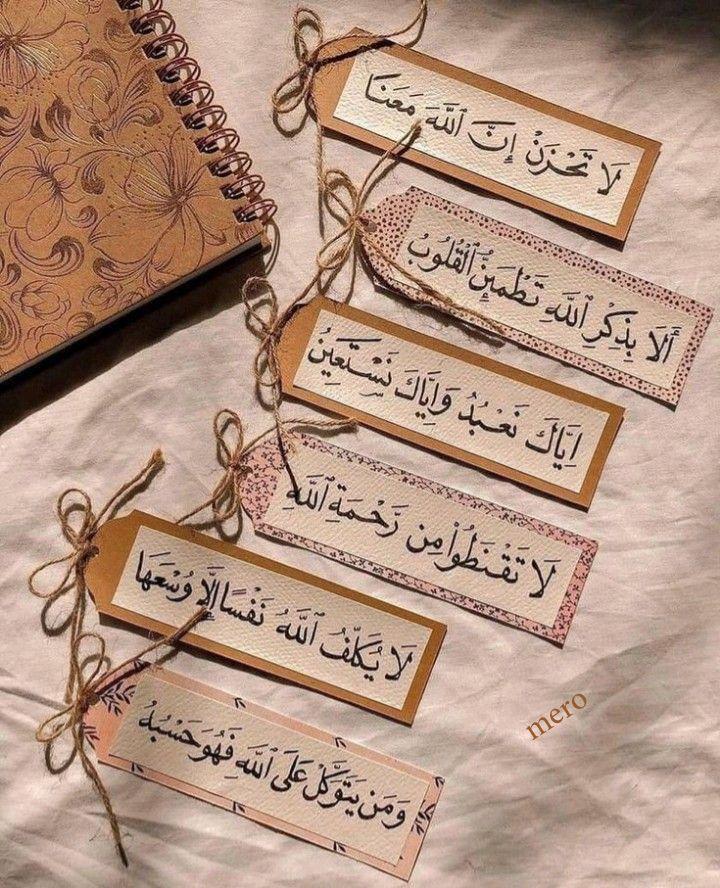 لَا تَحْزَنْ إِنَّ ٱللَّهَ مَعَنَا
أَلَا بِذِكْرِ ٱللَّهِ تَطْمَئِنُّ ٱلْقُلُوبُ
اِيَّاكَ نَعْبُدُ وَاِيَّاكَ نَسْتَعِينُ
لَا تَقْنَطُوا۟ مِن رَّحْمَةِ ٱللَّهِ
لَا يُكَلِّفُ ٱللَّهُ نَفْسًا إِلَّا وُسْعَهَا
وَمَن يَتَوَكَّلْ عَلَى ٱللَّهِ فَهُوَ حَسْبُهُ
mero